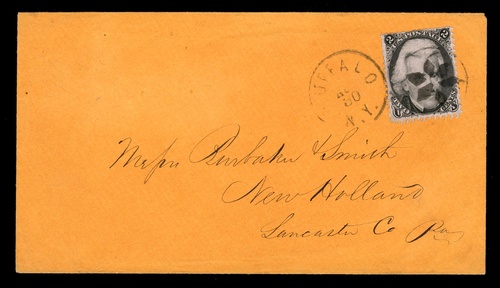 BUFFALO
30
N.Y.
2 U.S. POSTAGE 2
Messrs Burbaker & Smith
New Holland
Lancaster Co Pa